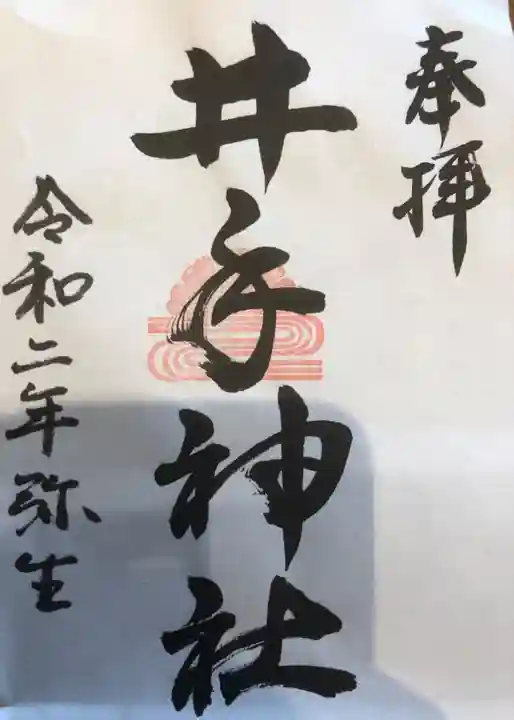 奉拝
井手神社
令和二年弥生